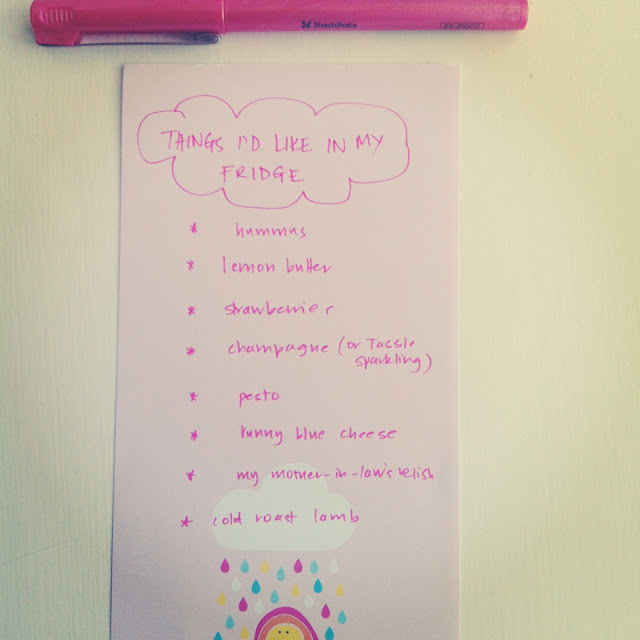 Shachihata
THINGS I'D LIKE IN MY
FRIDGE
* hummus
* lemon butter
* strawberries
* champagne (or Tassie
sparkling)
* pesto
* runny blue cheese
* my mother-in-law's relish
* cold roast lamb